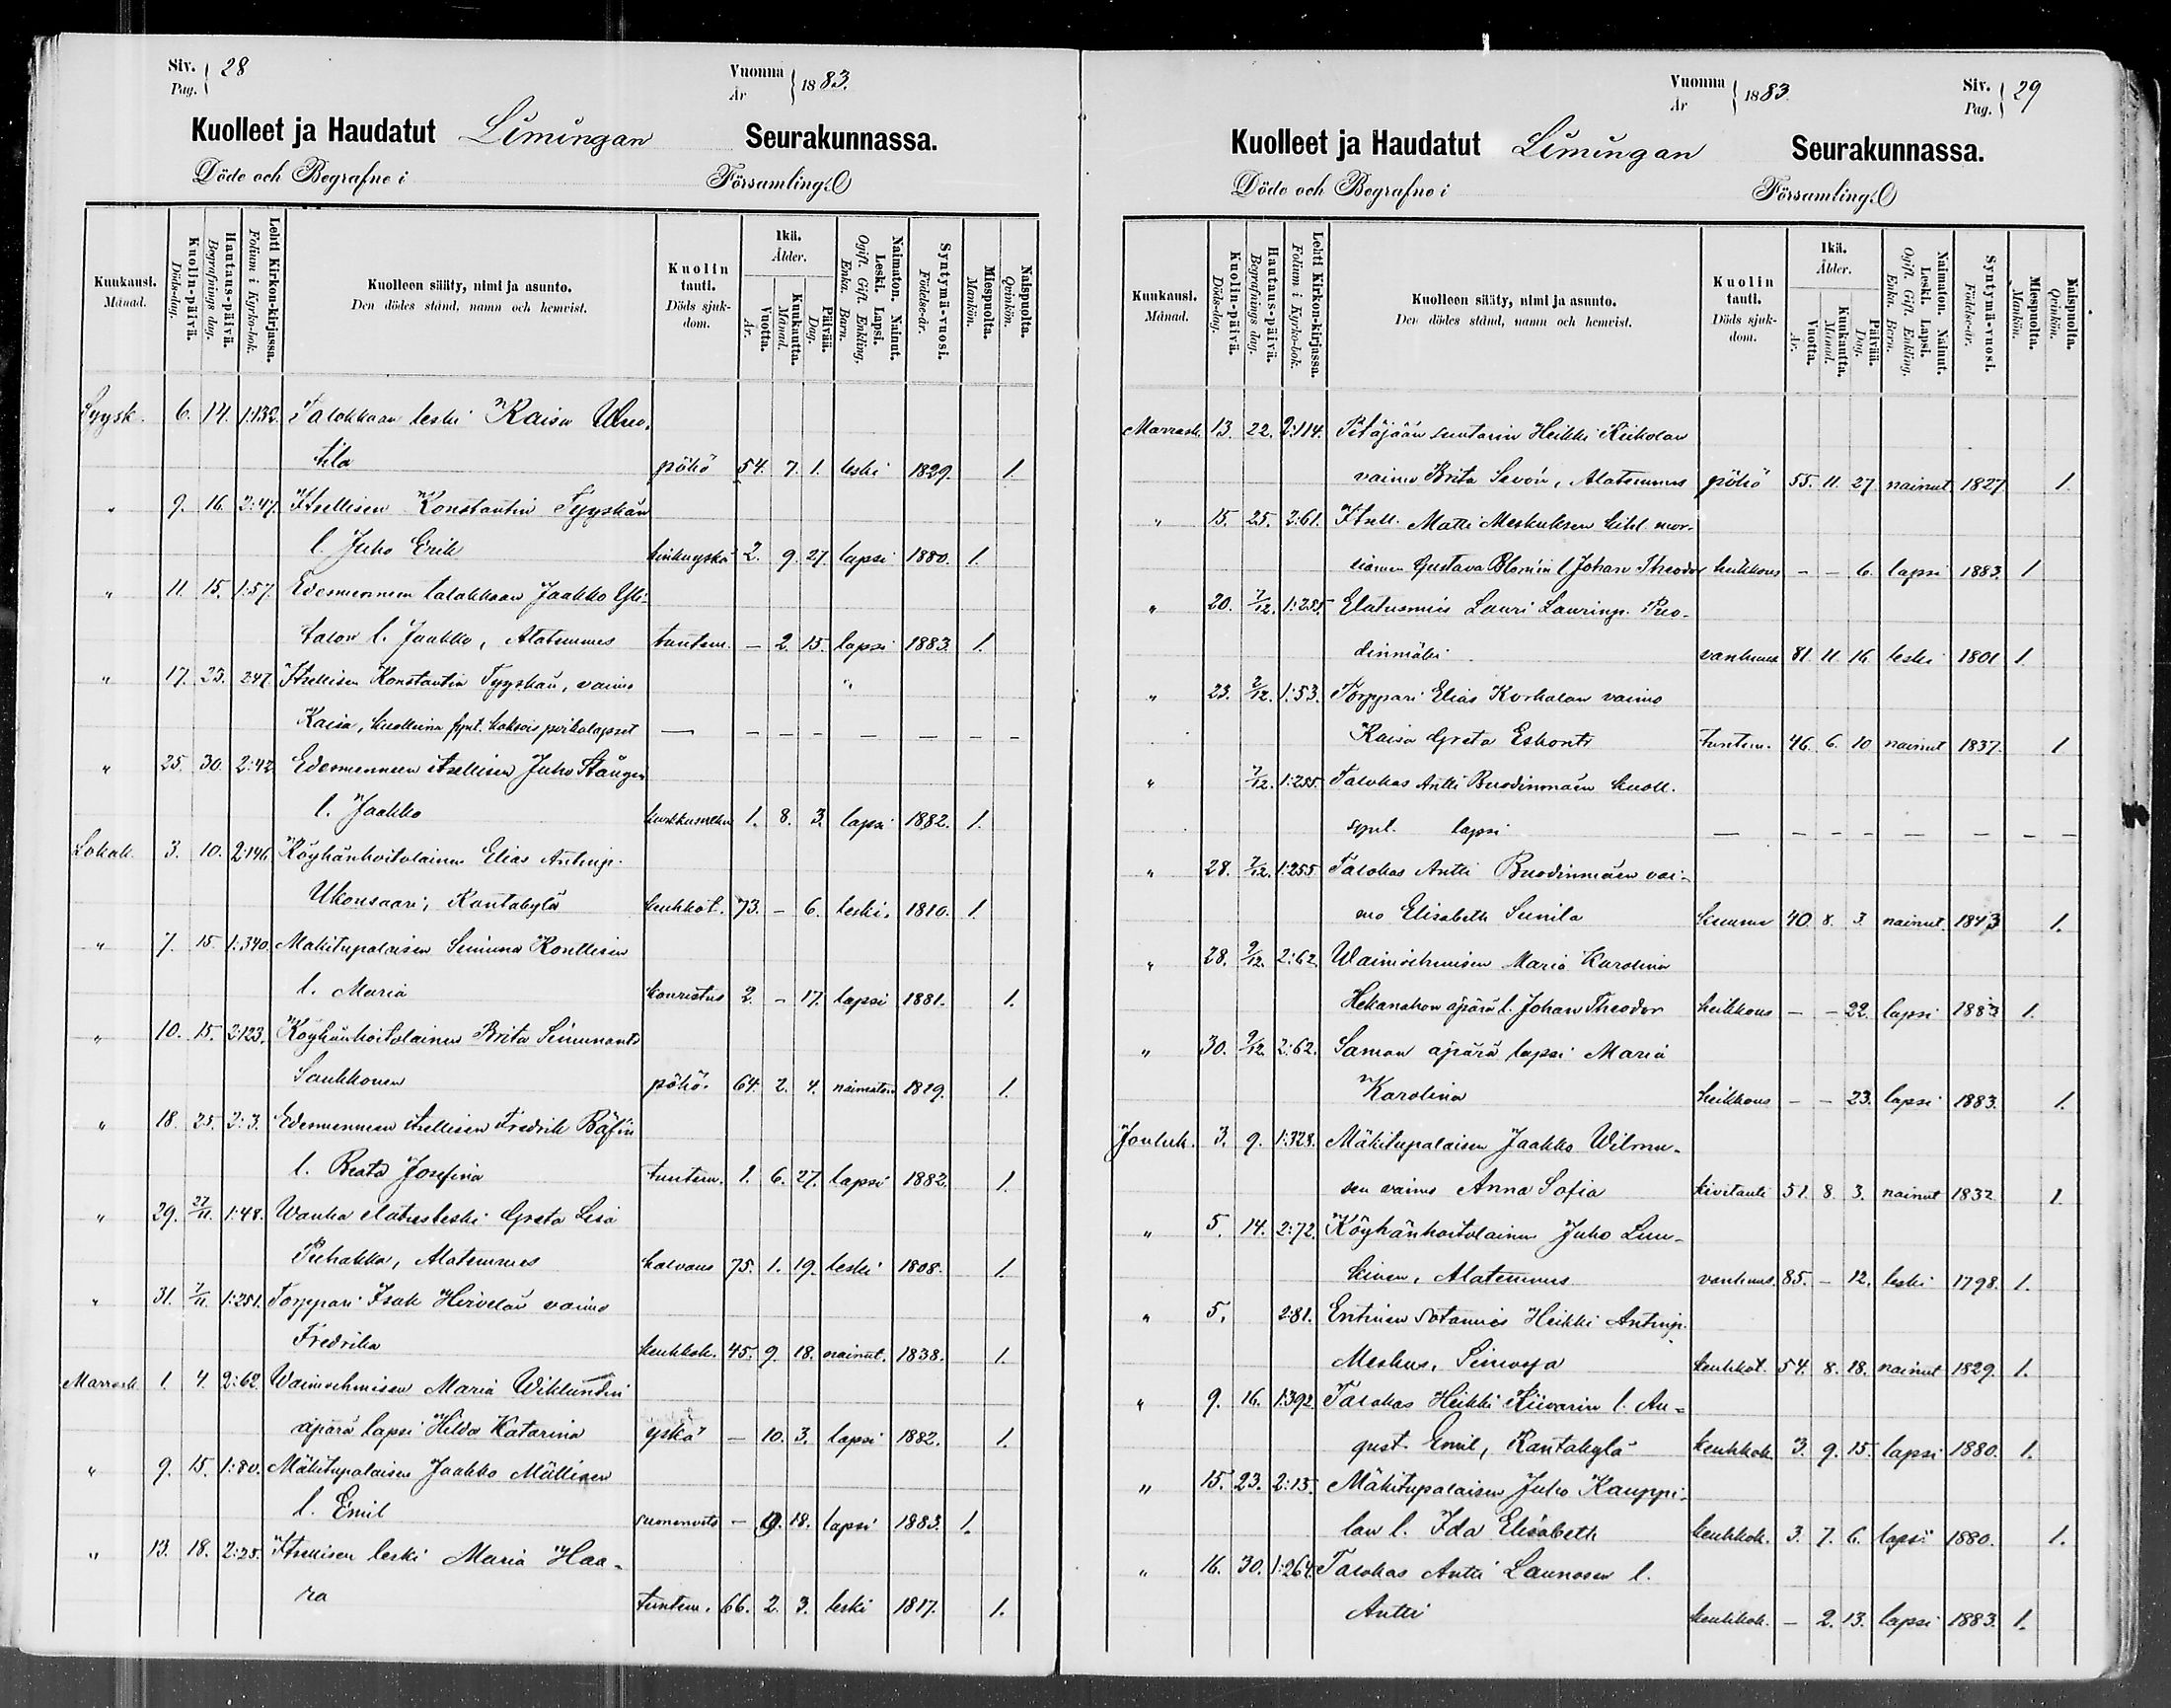 Siv. Pag. 28
Vuonna År 1883.
Kuolleet ja Haudatut Limingan Seurakunnassa.
Döde och Begrafne i Församling.
Kuukausi. Månad.
Kuolin-päivä. Döds-dag.
Hautaus-päivä. Begrafnings dag.
Lehti Kirkon-kirjassa. Folium i Kyrko-bok.
Kuolleen sääty, nimi ja asunto.
Den dödes stånd, namn och hemvist.
Kuolin tauti. Döds sjuk-dom.
Ikä. Ålder.
Vuotta. År.
Kuukautta. Månad.
Päivää. Dag.
Naimaton. Nainut. Leski. Lapsi. Ogift. Gift. Enkling, Enka. Barn.
Syntymä-vuosi. Födelse-år.
Miespuolta. Mankön.
Naispuolta. Qvinkön.
Syysk. 6. 14. 1:132. Talokkaan leski Kaisa
tila pöhö 54. 7. 1. leski 1829. 1.
" 9. 16. 2:47. Itsellisen Konstantin Tyyskän
l. Juho Erik hinkuyskä 2. 9. 27. lapsi 1880. 1.
" 11. 15. 1:57. Edesmenneen talokkaan Jaakko Yli-
talon l. Jaakko, Alatemmes tuntem. – 2. 15. lapsi 1883. 1.
" 17. 23. 247. Itsellisen Konstantin Tyyskän, vaimo "
Kaisa, kuolleina synt. kaksois poikalapset — – – – – – – –
" 25. 30. 2:42. Edesmenneen itsellisen Juho Stången
l. Jaakko 1. 8. 3. lapsi 1882. 1.
Lokak. 3. 10. 2:146. Köyhänhoitolainen Elias Antinp.
Ukonsaari, Rantakylä keuhkot. 73. – 6. leski. 1810. 1.
" 7. 15. 1:340. Mäkitupalaisen Simuna Konttisen
l. Maria kouristus 2. – 17. lapsi 1881. 1.
" 10. 15. 2:123. Köyhänhoitolainen Brita Simunant.
Saukkonen pöhö. 64. 2. 4. naimaton 1819. 1.
" 18. 25. 2:3. Edesmenneen itsellisen Fredrik Båfin
l. Beata Josefina tuntem. 1. 6. 27. lapsi 1882. 1.
" 29. 27/11. 1:48. Wanha elatusleski Greta Lisa
Piehakka, Alatemmes halvaus 75. 1. 19. leski 1808. 1.
" 31. 7/11. 1:251. Torppari Isak Hirvelän vaimo
Fredrika keuhkok. 45. 9. 18. nainut. 1838. 1.
Marrask. 1. 4. 2:62. Waimoihmisen Maria Wiklundin
äpärä lapsi Hilda Katarina yskä – 10. 3. lapsi 1882. 1.
" 9. 15. 1:80. Mäkitupalaisen Jaakko Mällinen
l. Emil suonenveto – 9. 18. lapsi 1883. 1.
" 13. 18. 2:25. Itsellisen leski Maria Haa-
ra tuntem. 66. 2. 3. leski 1817. 1.
Vuonna År 1883.
Siv. Pag. 29
Kuolleet ja Haudatut Limingan Seurakunnassa.
Döde och Begrafne i Församling.
Kuukausi. Månad.
Kuolin-päivä. Döds-dag.
Hautaus-päivä. Begrafnings dag.
Lehti Kirkon-kirjassa. Folium i Kyrko-bok.
Kuolleen sääty, nimi ja asunto.
Den dödes stånd, namn och hemvist.
Kuolin tauti. Döds sjuk-dom.
Ikä. Ålder.
Vuotta. År.
Kuukautta. Månad.
Päivää. Dag.
Naimaton. Nainut. Leski. Lapsi. Ogift. Gift. Enkling. Enka. Barn.
Syntymä-vuosi. Födelse-år.
Miespuolta. Mankön.
Naispuolta. Qvinkön.
Marrask. 13. 22. 2:114. Pitäjään suutarin Heikki Kiikolan
vaimo Brita Savén, Alatemmes pöhö 55. 11. 27. nainut 1827. 1.
" 15. 25. 2:61. Itsell. Matti Meskuksen kihl. mor-
siamen Gustava Blomin l. Johan Theodor heikkous – – 6. lapsi 1883. 1
" 20. 7/12. 1:255. Elatusmies Lauri Laurinp. Ruo-
dinmäki vanhuus 81. 11. 16. leski 1801 1.
" 23. 2/12. 1:53. Torppari Elias Korkalan vaimo
Kaisa Greta Eskont. tuntem. 46. 6. 10 nainut 1837. 1
" 7/12. 1:255. Talokas Antti Ruodinmäen kuoll.
synt. lapsi — – – – – – – –
" 28. 7/12. 1:255 Talokas Antti Ruodinmäen vai-
mo Elisabeth Sunila kuume 40. 8. 3. nainut. 1843 1.
" 28. 9/12. 2:62. Waimoihmisen Maria Karolina
Hekanahon äpärä l. Johan Theodor heikkous – – 22. lapsi 1883 1.
" 30. 9/12. 2:62. Saman äpärä lapsi Maria
Karolina heikkous – – 23. lapsi 1883. 1.
Jouluk. 3. 9. 1:328. Mäkitupalaisen Jaakko Wilmu-
sen vaimo Anna Sofia kivitauti 51. 8. 3. nainut 1832. 1.
" 5. 14. 2:72. Köyhänhoitolainen Juho Luu-
kinen, Alatemmes vanhuus. 85. – 12. leski 1798. 1.
" 5. 2:81. Entinen sotamies Heikki Antinp.
Meskus, Simoja keuhkot. 54. 8. 18. nainut 1829. 1.
" 9. 16. 1:392. Talokas Heikki Kiivarin l. Au-
gust. Emil, Rantakylä keuhkok. 3. 9. 15. lapsi 1880. 1.
" 15. 23. 2:15. Mäkitupalaisen Juho Kauppi-
lan l. Ida Elisabeth keuhkok. 3. 7. 6. lapsi 1880. 1.
" 16. 30. 1:264. Talokas Antti Launosen l.
Antti keuhkok. – 2. 13. lapsi 1883. 1.